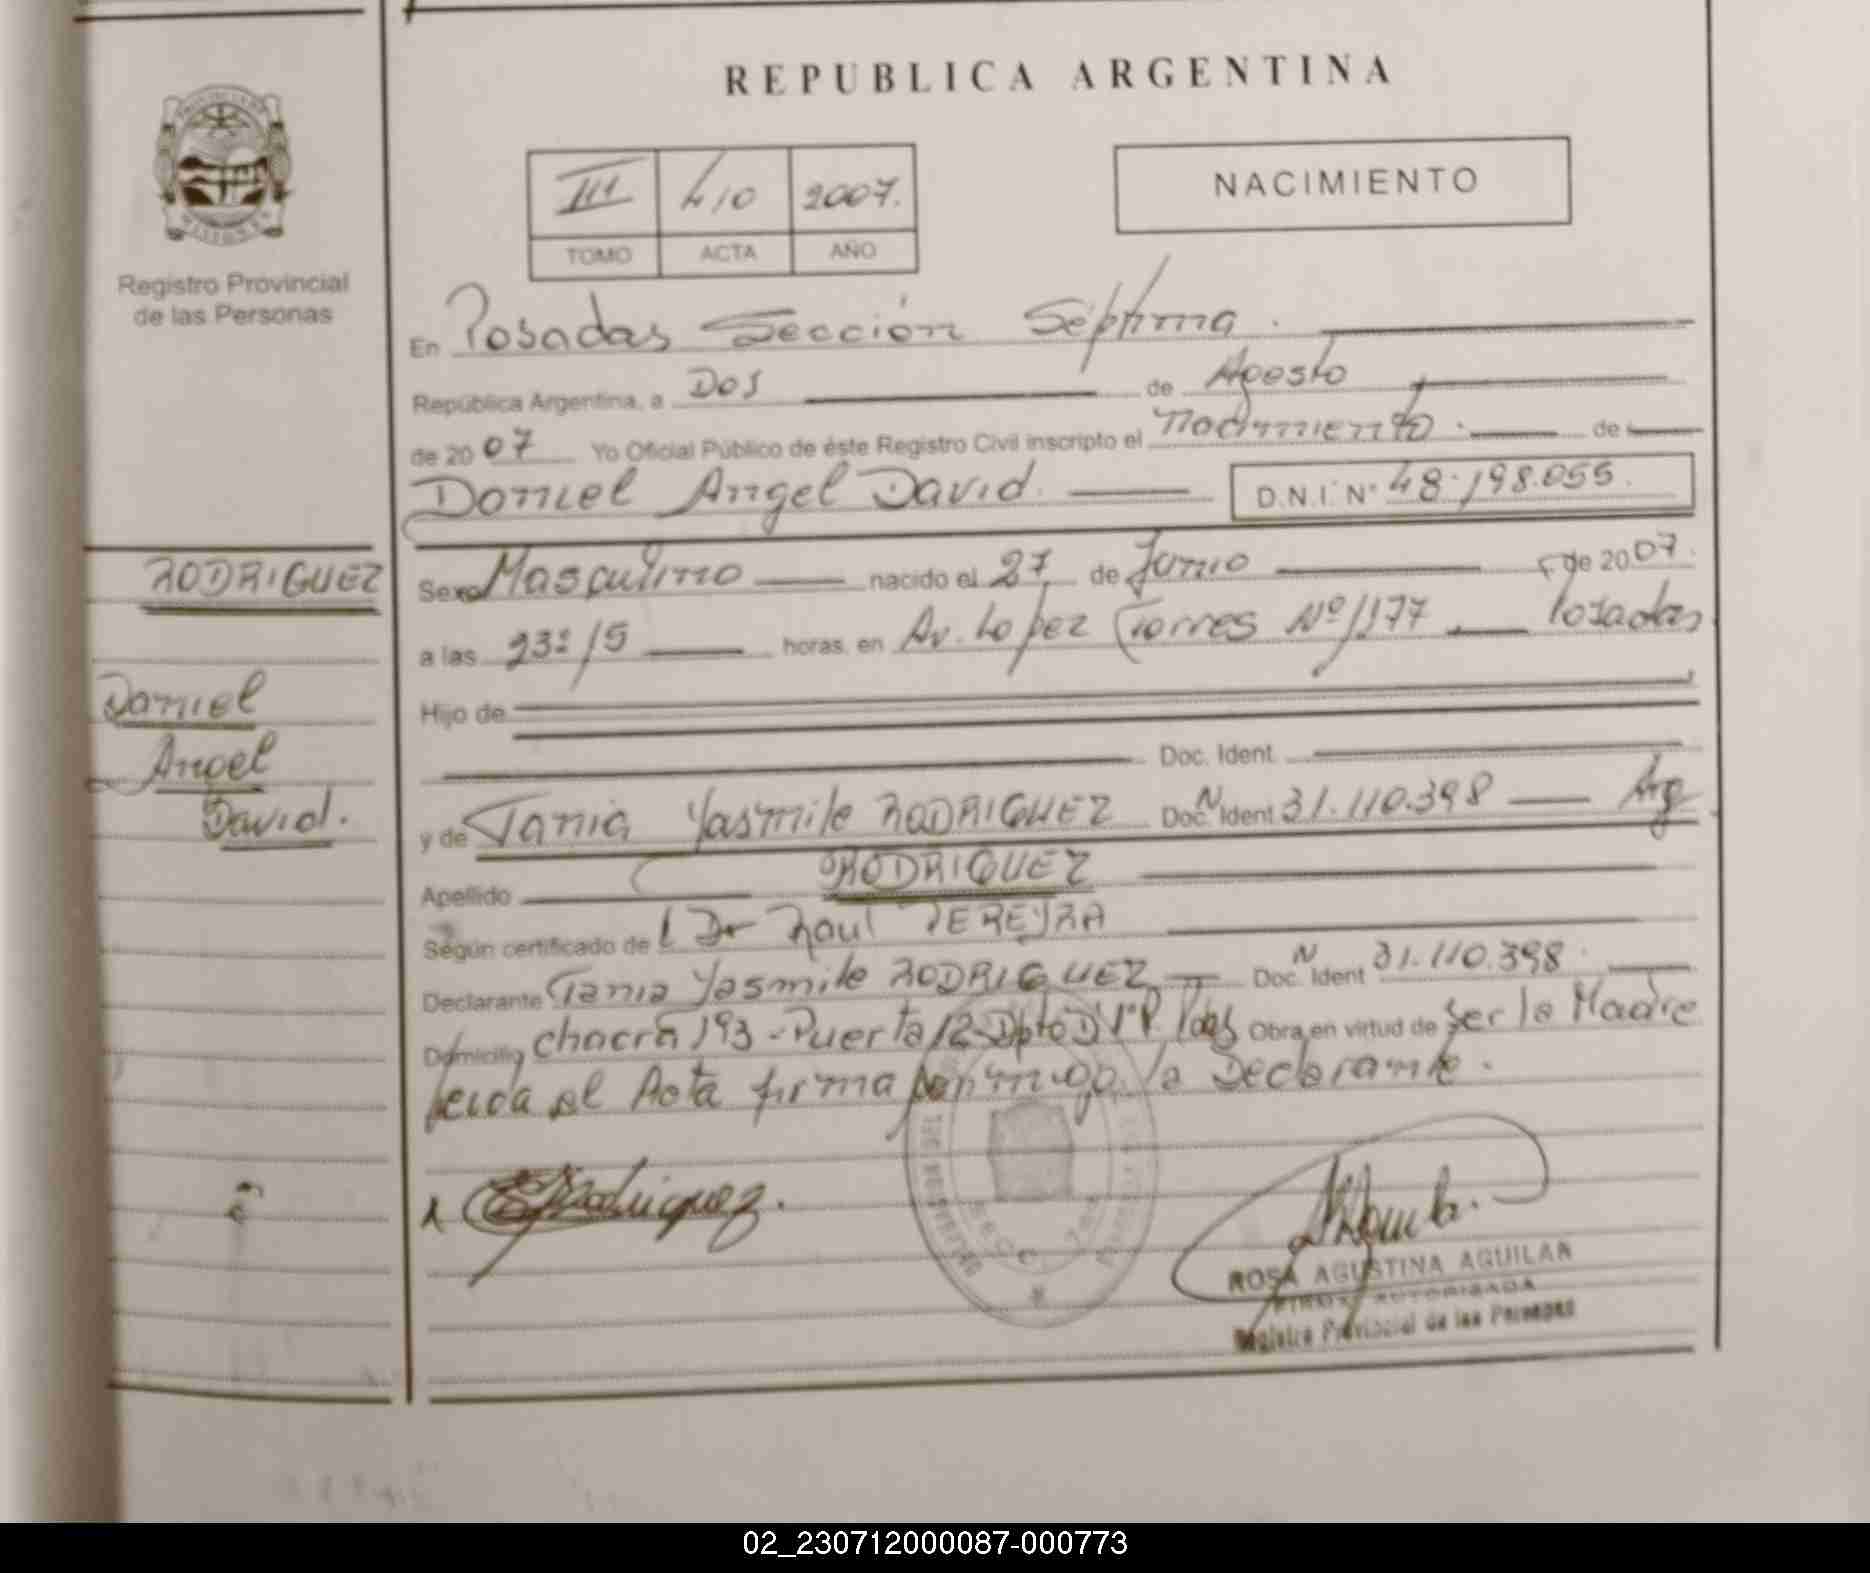 REPUBLICA ARGENTINA
Registro Provincial
de las Personas
III 410 2007.
TOMO ACTA AÑO
NACIMIENTO
En Posadas Sección Séptima.
República Argentina, a Dos de Agosto
de 2007 Yo Oficial Público de éste Registro Civil inscripto el nacimiento. de
Daniel Angel David. D.N.I. Nº 48.198.055.
RODRIGUEZ
Daniel
Angel
David.
Sexo Masculino nacido el 27 de Junio de 2007.
a las 23:15 horas, en Av. Lopez Torres Nº 1177 Posadas
Hijo de
Doc. Ident.
y de Tania Yasmile RODRIGUEZ Doc. N Ident 31.110.398 Arg
Apellido RODRIGUEZ
Según certificado de Dr Raul PEREYRA
Declarante Tania Yasmile RODRIGUEZ Doc. N Ident 31.110.398.
Domicilio chacra 193 - Puerta 12 Dpto D 1ºP. Pdas Obra en virtud de Ser la Madre
Leida el Acta firma conmigo la Declarante.
Rodriguez.
ROSA AGUSTINA AGUILAR
FIRMA AUTORIZADA
Registro Provincial de las Personas
02_230712000087-000773